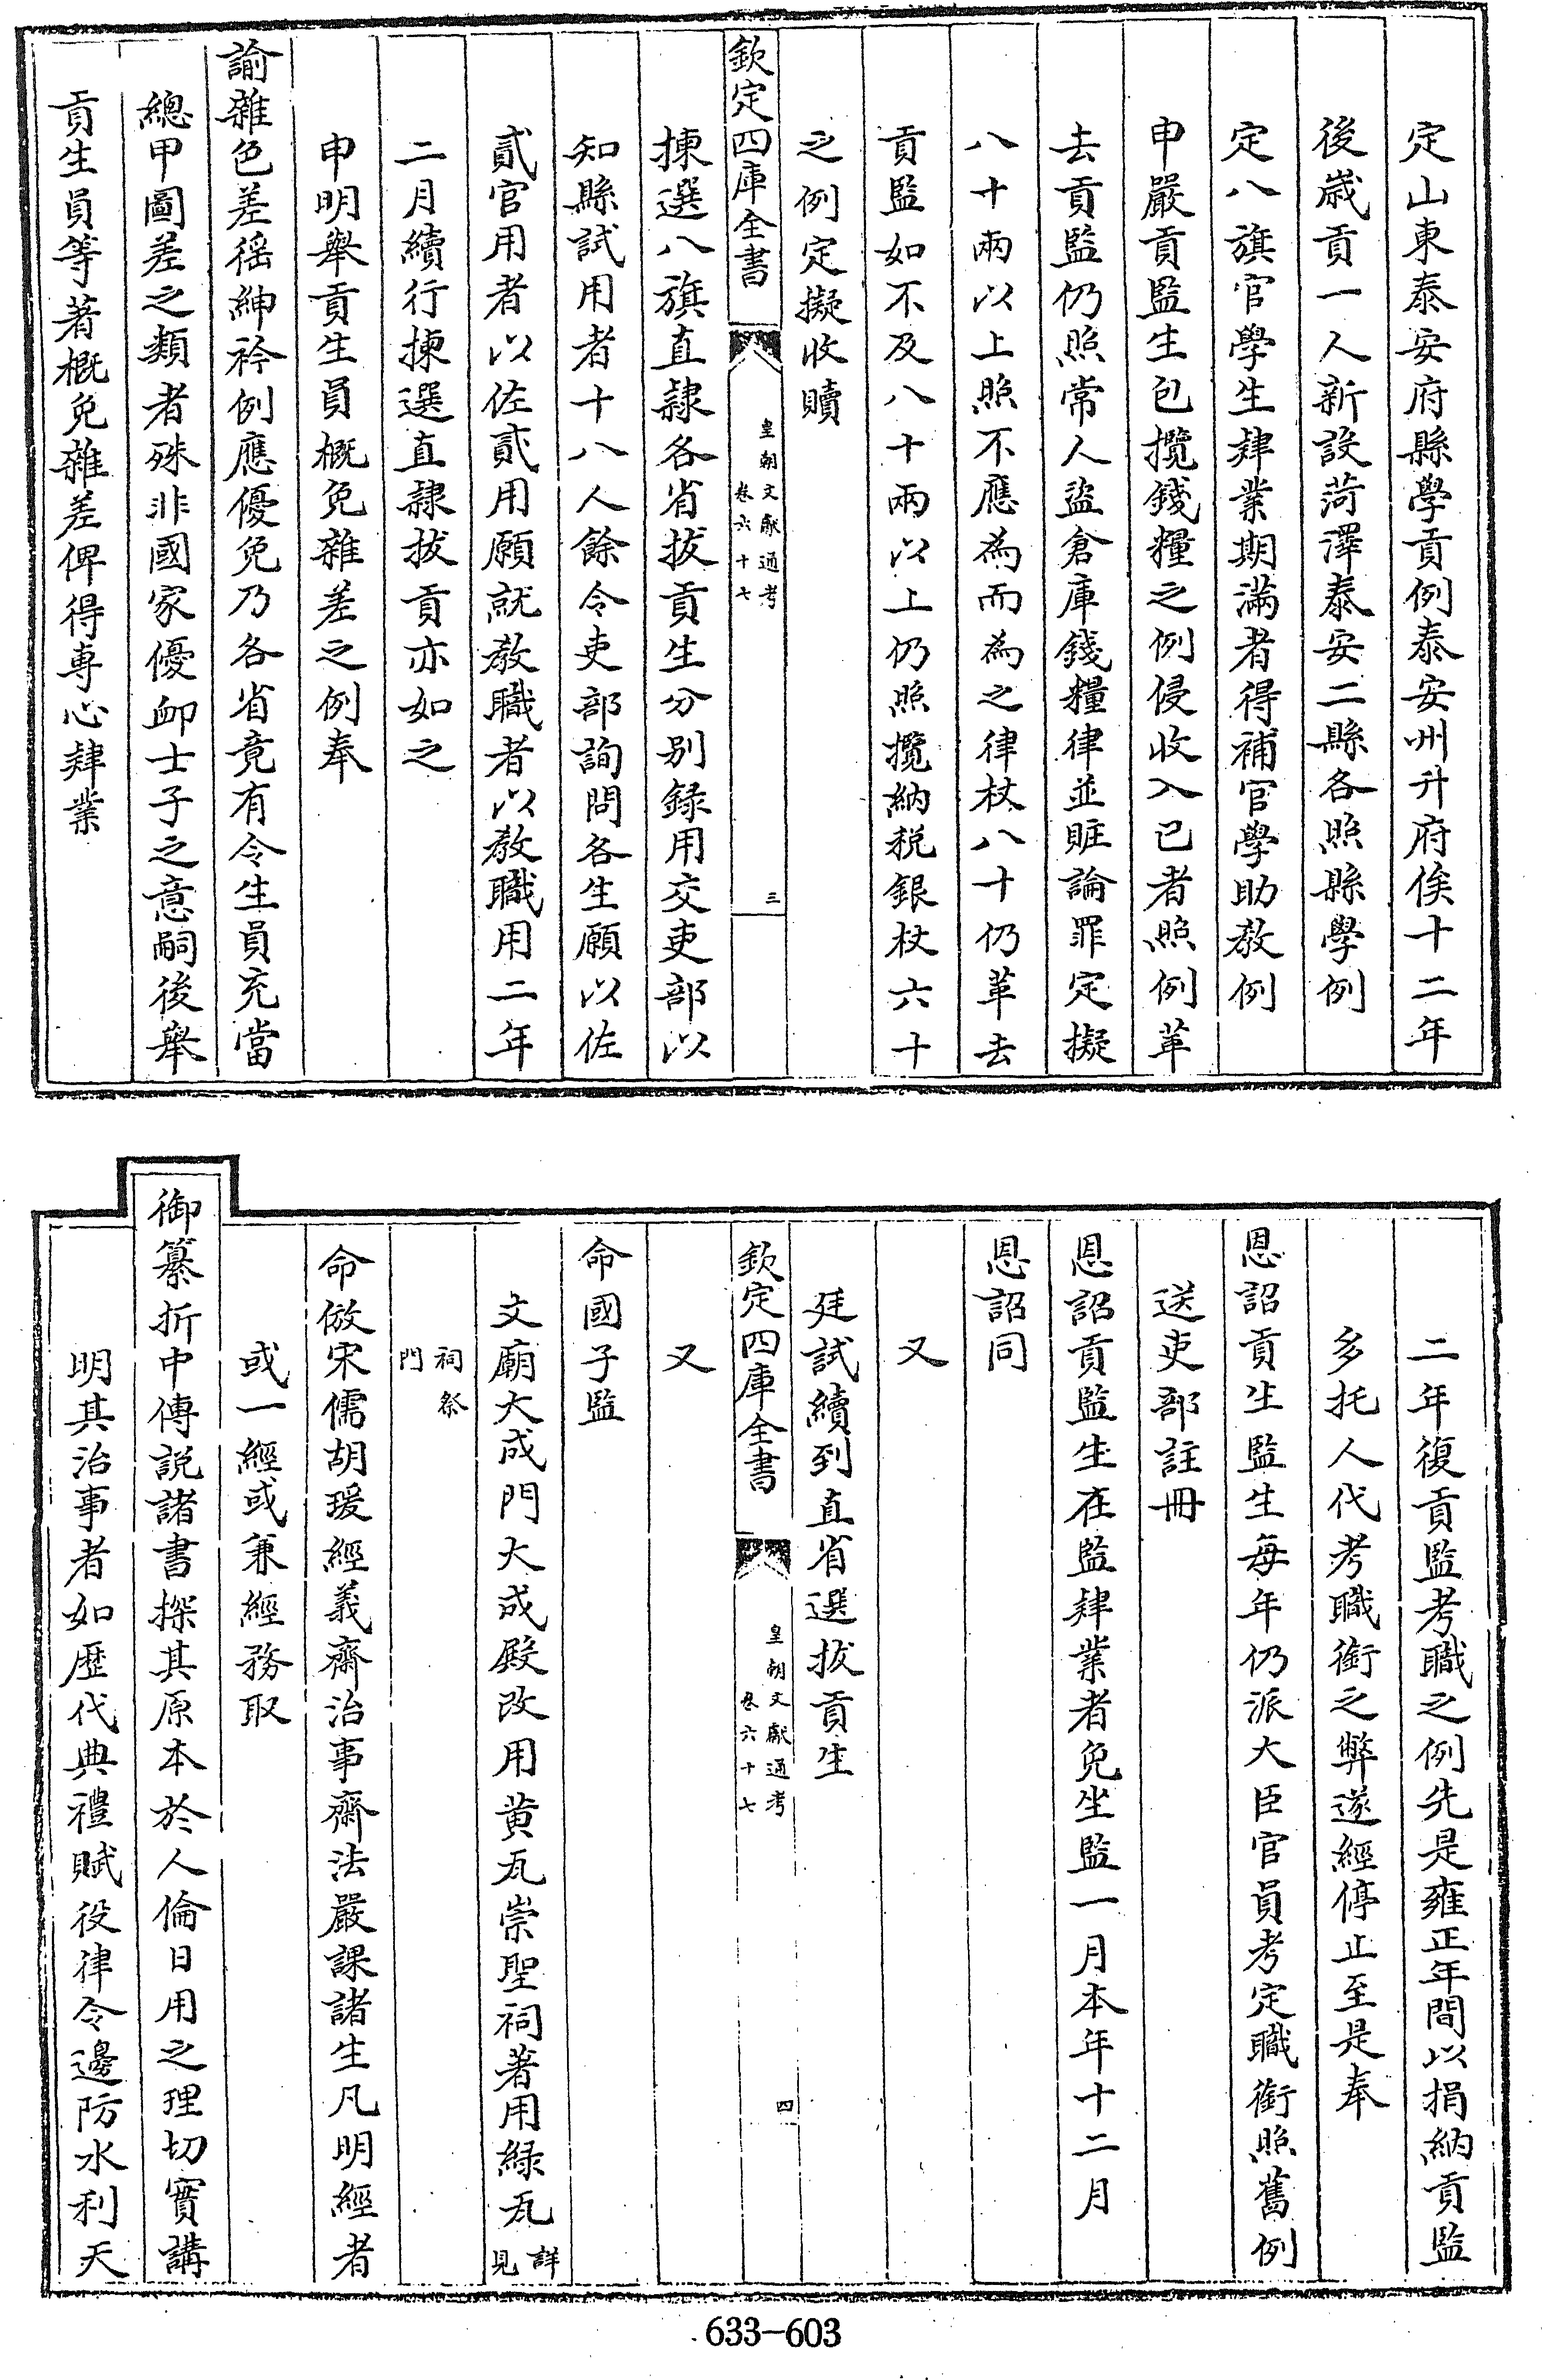 定山東泰安府縣學貢例泰安州升府俟十二年
後歲貢一人新設菏澤泰安二縣各照縣學例
定八旗官學生肄業期滿者得補官學助教例
申嚴貢監生包攬錢糧之例侵收入己者照例革
去貢監仍照常人盜倉庫錢糧律並賍論罪定擬
八十兩以上照不應為而為之律杖八十仍革去
貢監如不及八十兩以上仍照攬納税銀杖六十
之例定擬收贖
欽定四庫全書
皇朝文獻通考
卷六十七
三
揀選八旗直隸各省拔貢生分别録用交吏部以
知縣試用者十八人餘令吏部詢問各生願以佐
貳官用者以佐貳用願就教職者以教職用二年
二月續行揀選直隸拔貢亦如之
申明舉貢生員概免雜差之例奉
諭雜色差徭紳衿例應優免乃各省竟有令生員充當
總甲圖差之類者殊非國家優卹士子之意嗣後舉
貢生員等著概免雜差俾得專心肄業
二年復貢監考職之例先是雍正年間以捐納貢監
多托人代考職銜之弊遂經停止至是奉
恩詔貢生監生每年仍派大臣官員考定職銜照舊例
送吏部註冊
恩詔貢監生在監肄業者免坐監一月本年十二月
恩詔同
又
廷試續到直省選拔貢生
欽定四庫全書
皇朝文獻通考
卷六十七
四
又
命國子監
文廟大成門大成殿改用黄瓦崇聖祠著用緑瓦詳見
祠祭門
命倣宋儒胡瑗經義齋治事齋法嚴課諸生凡明經者
或一經或兼經務取
御纂折中傳説諸書探其原本於人倫日用之理切實講
明其治事者如歷代典禮賦役律令邊防水利天
633-603